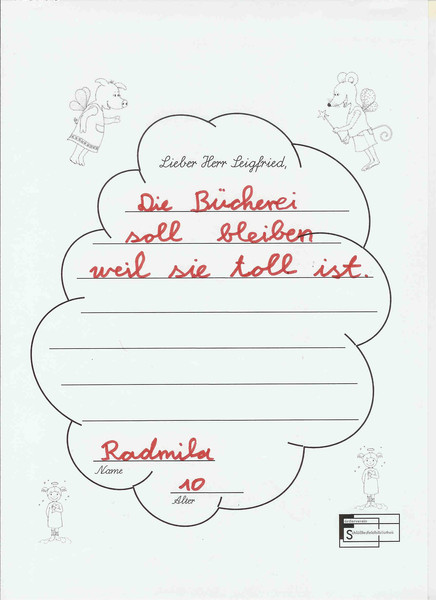 Lieber Herr Leigfried,
Die Bücherei
soll bleiben
weil sie toll ist.
Radmila
Name
10
Alter